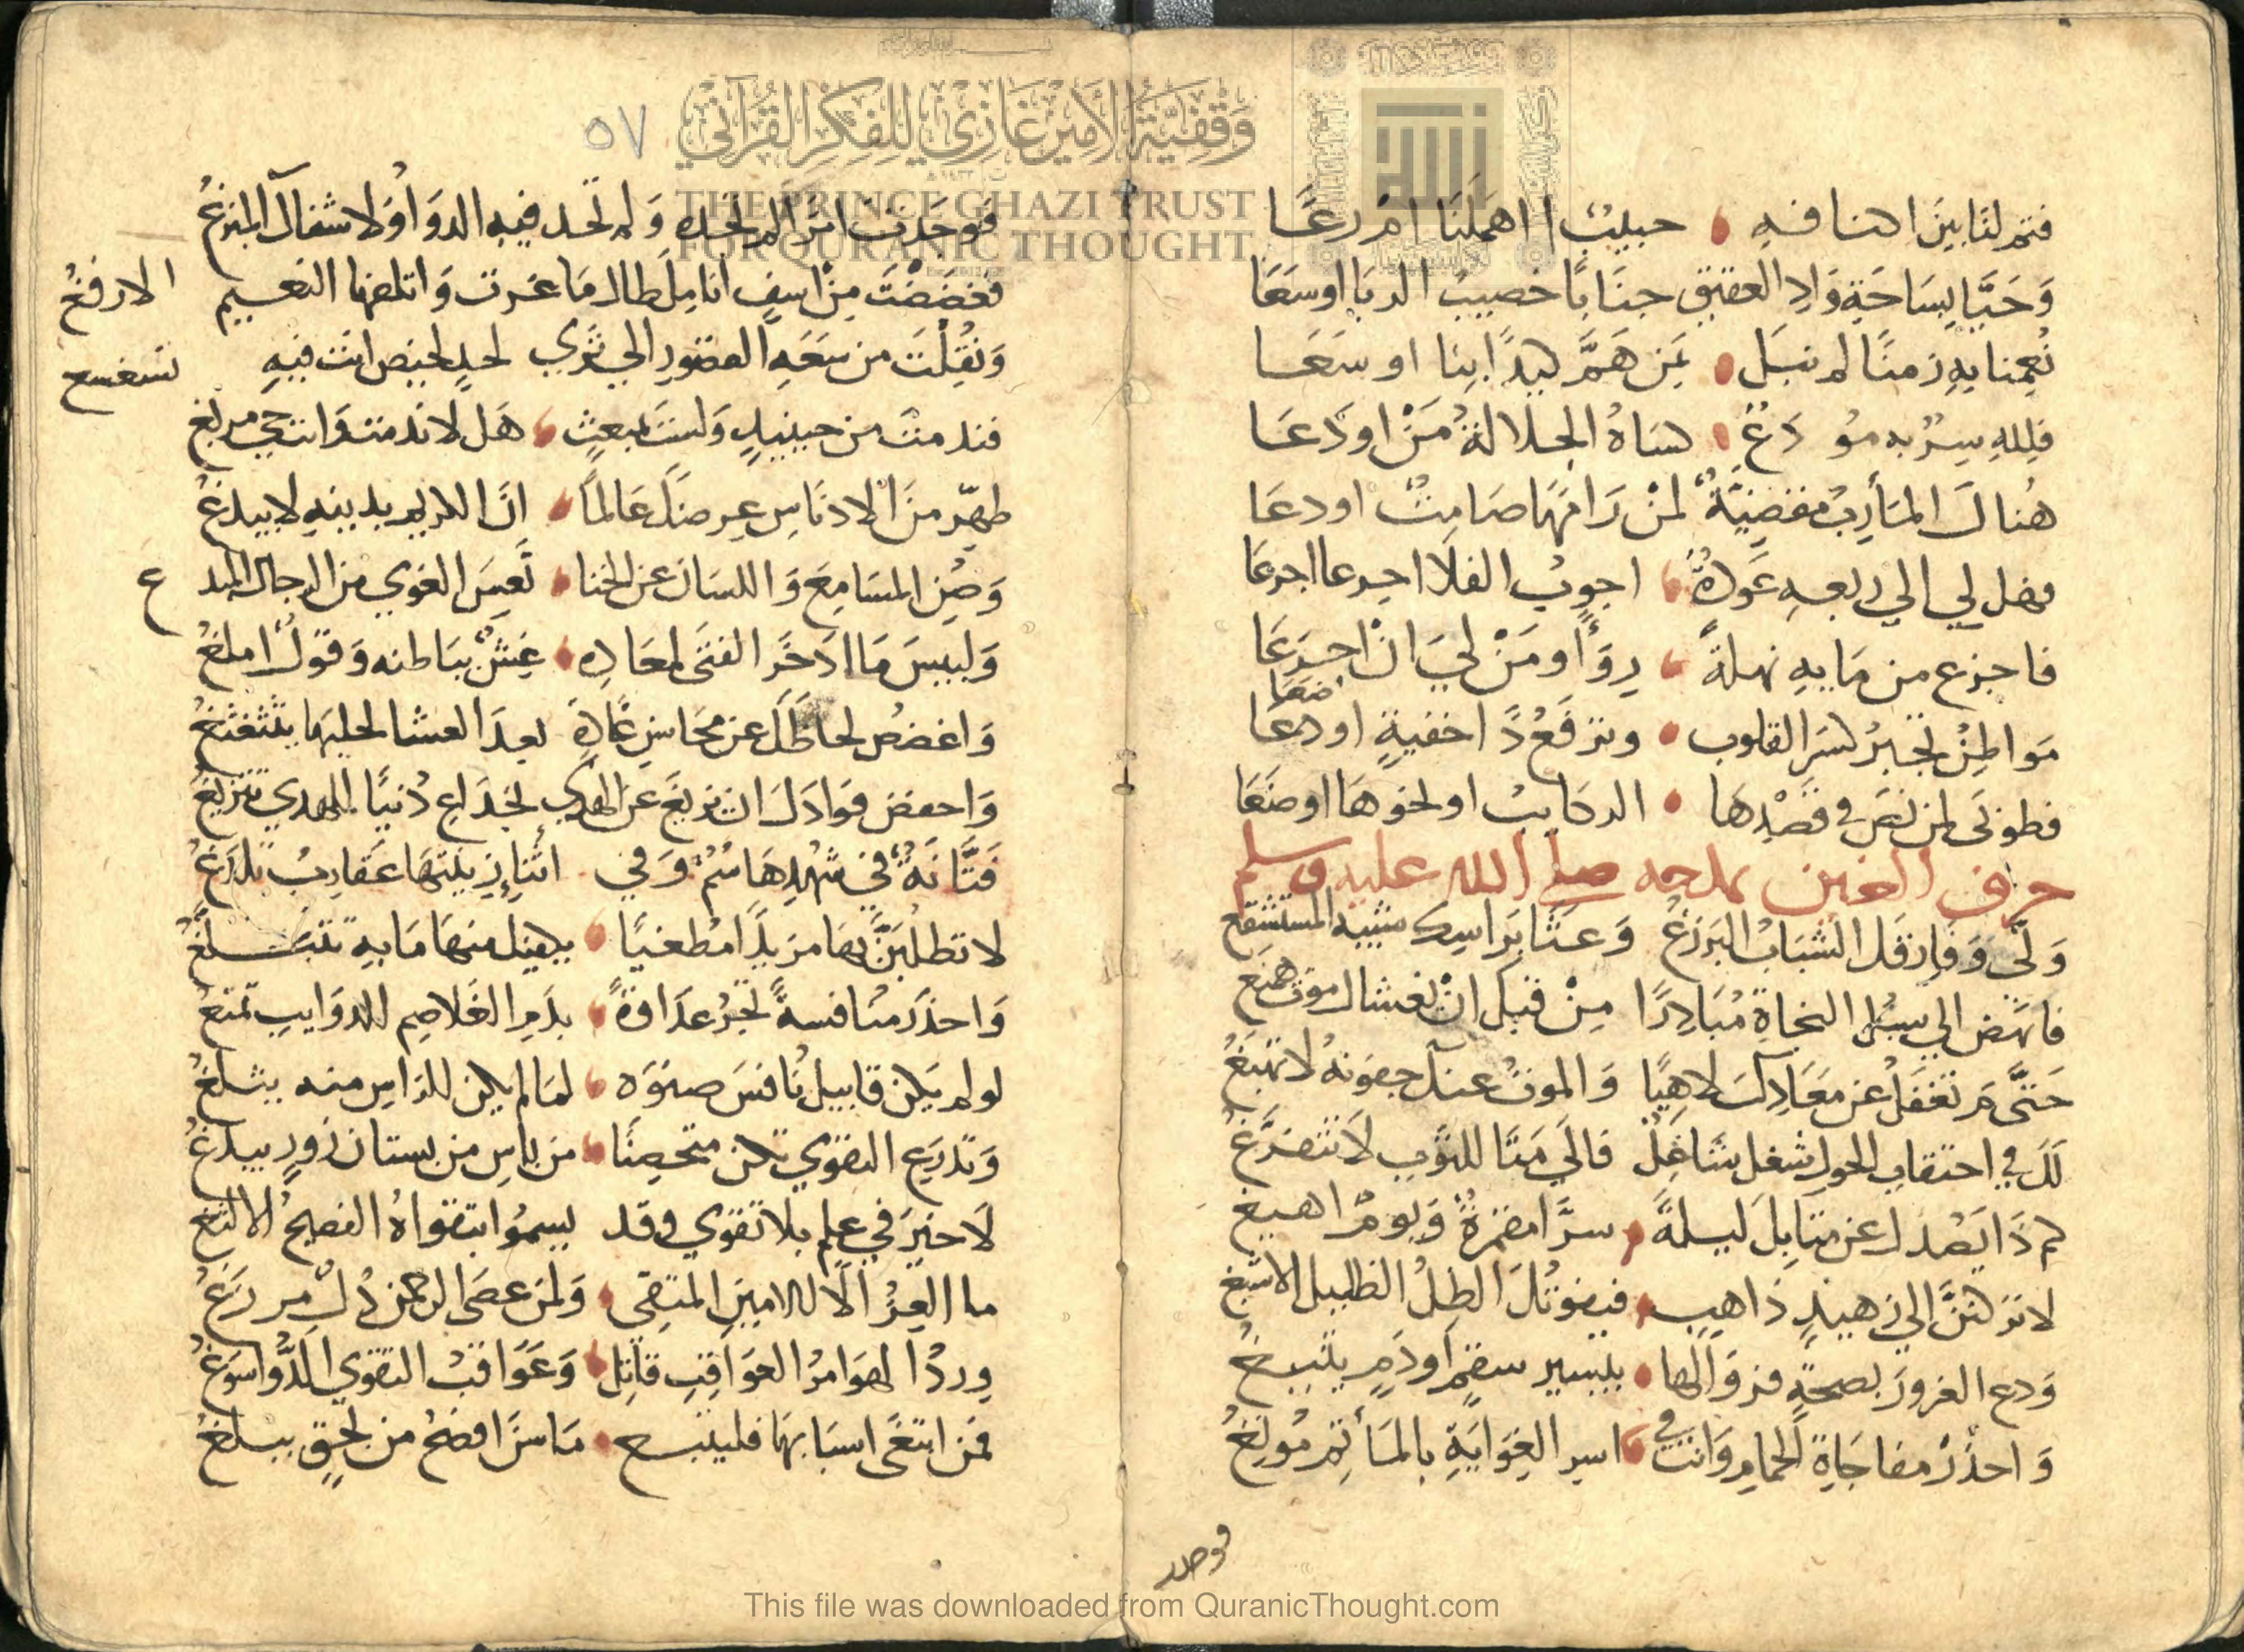 فثم لنا بين اهنا فه حبيب اهملنا ام رعا
وحيا بساحة واد العقيق جنابا خصيب الربا اوسعا
نعمنا به زمنا لم نبل بمن هم كيدا بنا او سعا
فلله سر به مودع كساه الجلالة من اودعا
هناك المآرب مقضية لمن رامها صامت او دعا
فهل لي الي ربعه عودة اجوب الفلا اجرعا اجرعا
فاجزع من مايه نهلة روا ومن لي ان اجرعا
مواطن تجبر كسر القلوب وترفع اخفية او
فطوبى لمن نص في قصدها الركايب او نحوها اوضعا
حرف الغين بمدحه صلى الله عليه وسلم
ولى وفارقك الشباب البرزغ وعثا براسك مشيبه
فانهض الي سبل النجاة مبادرا من قبل ان يغشاك موت هميغ
حتى م تغفل عن معادك لاهيا والموت عنك جفونه لا تهبغ
لك في احتقاب الحوب شغل شاغل فالى متا للتوب لا تتفرغ
كم ذا يصدك عن متابك ليلة سرا مقمرة ويوم اهيغ
لا تركنن الى زهيد ذاهب فيفوتك الظل الظليل الاسبغ
ودع الغرور بصحة فزوالها بيسير سقم او دم يتبيغ
واحذر مفاجاة الحمام وانت في اسر الغواية بالمآثم مولغ
فوجدت
٥٧
فوجدت امرا لم تجده ولم تجد فيه الدوا ولا شفاك المبزغ
فعضضت من اسف انامل طال ما عرت واتلفها النعيم الارفغ
ونقلت من سعة القصور الى ثرى لحد لحيض انت فيه
فندمت من حينيذ ولست بمعث هلا ندمت وانت حي مربغ
طهر من الادناس عرضك عالما ان الكريم بدينه لا يبدغ
وصن المسامع واللسان عن الخنا تعس الغوي من الرجال المبد غ
ولبيس ما ادخر الفتى لمعاده غش بباطنه وقول املغ
واغضض لحاظك عن محاسن غادة
واحفض فوادك ان يزيغ عن الهدى لخداع دنيا للهدى تتزيغ
فتانة في شهدها سم وفي اثنا زينتها عقارب تلدغ
لا تطلبن بها مزيدا مطغيا يكفيك منها ما به تتبلغ
واحذر منافسة تجر عداوة بدم الغلاصم للذوايب تمتغ
لو لم يكن قابيل نافس صنوه لما لم يكن للراس منه يثلغ
وتدرع التقوي تكن متحصنا من باس من بستان زور يبدغ
لا خير في علم بلا تقوي وقد يسموا بتقواه الفصيح الالثغ
ما العز الا للامين المتقى ولمن عصى الرحمن ذل مردغ
وردا لهوا مر العواقب قاتل وعواقب التقوي الذ واسوغ
فمن ابتغى اسبابها فليتبع ما سن افصح من بحق يبلغ
وقفية الأمير غازي للفكر القرآني
THE PRINCE GHAZI TRUST
FOR QURANIC THOUGHT
This file was downloaded from QuranicThought.com